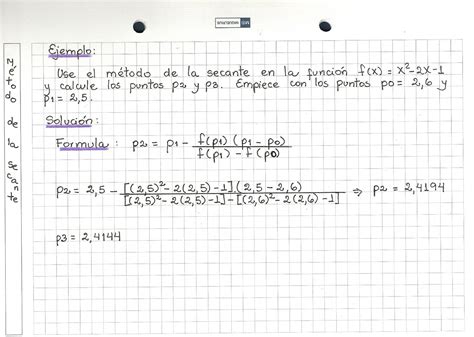 Ejemplo:
Use el método de la secante en la función f(x) = x²-2x-1
y calcule los puntos p2 y p3. Empiece con los puntos p0 = 2,6 y
p1 = 2,5.
Solución:
Fórmula: p2 = p1 - f(p1) (p1 - p0) / f(p1) - f(p0)
p2 = 2,5 - [(2,5)² - 2(2,5) - 1](2,5 - 2,6) / [(2,5)² - 2(2,5) - 1] - [(2,6)² - 2(2,6) - 1] ⇒ p2 = 2,4194
p3 = 2,4144
Método de la secante